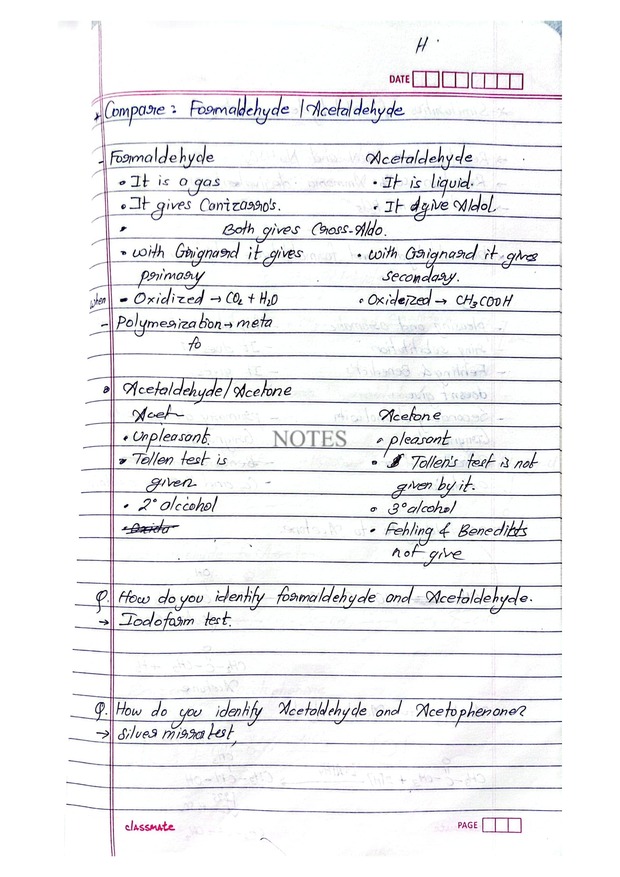 H.
DATE
Compare: Formaldehyde / Acetaldehyde
- Formaldehyde Acetaldehyde
• It is a gas • It is liquid.
• It gives Canizarro's. • It give Aldol.
• Both gives Cross-Aldo.
• with Grignard it gives • with Grignard it gives
primary secondary.
when - Oxidized → CO2 + H2O • Oxideized → CH3COOH
- Polymerization → meta
fo
• Acetaldehyde/Acetone
Acet Acetone
• Unpleasant. • pleasant
NOTES
• Tollen test is • Tollen's test is not
given given by it.
• 2° alccohol • 3° alcohol
• Oxida • Fehling & Benedibts
not give
Q. How do you identify formaldehyde and Acetaldehyde.
→ Iodoform test.
Q. How do you identify Acetaldehyde and Acetophenone?
→ Silver mirror test,
classmate PAGE